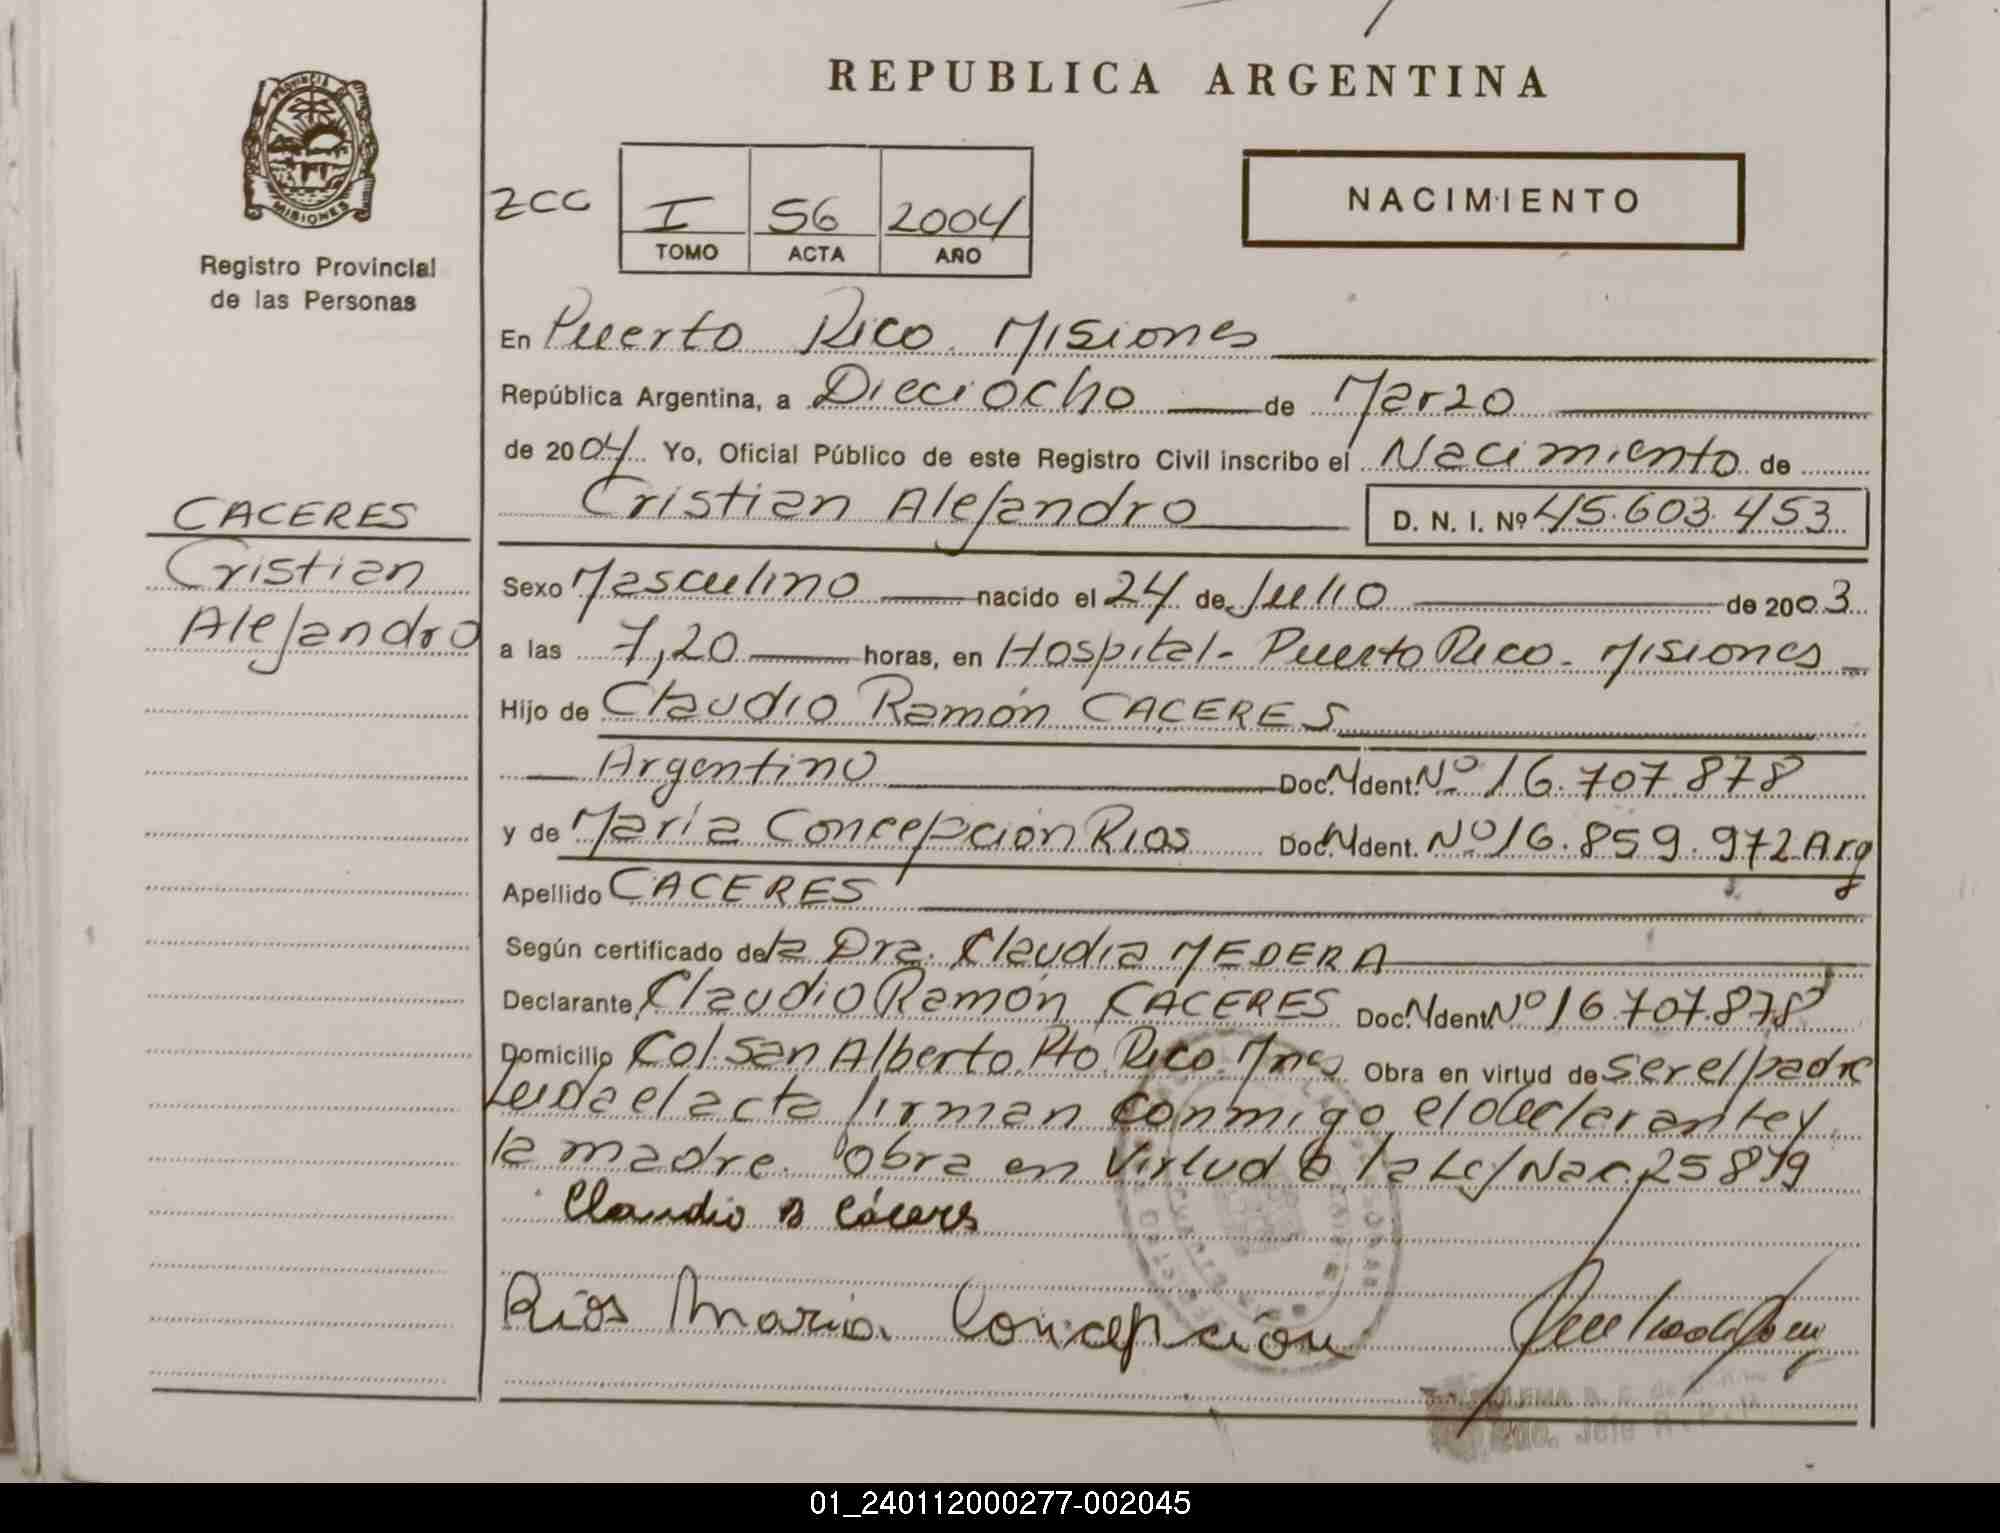 REPUBLICA ARGENTINA
PROVINCIA DE
MISIONES
Registro Provincial
de las Personas
ZCC
I 56 2004
TOMO ACTA AÑO
NACIMIENTO
En Puerto Rico. Misiones
República Argentina, a Dieciocho de Marzo
de 2004 Yo, Oficial Público de este Registro Civil inscribo el Nacimiento de
Cristian Alejandro D. N. I. Nº 45.603.453
CACERES
Cristian
Alejandro
Sexo Masculino nacido el 24 de Julio de 2003
a las 7,20 horas, en Hospital - Puerto Rico - Misiones
Hijo de Claudio Ramón CACERES
Argentino Doc. N Ident. Nº 16.707.878
y de María Concepción Rios Doc. N Ident. Nº 16.859.972 Arg
Apellido CACERES
Según certificado de la Dra. Claudia MEDERA
Declarante Claudio Ramón CACERES Doc. N Ident. Nº 16.707.878
Domicilio Col. San Alberto. Pto. Rico. Mnes Obra en virtud de ser el padre
Leida el acta firman conmigo el declarante y
la madre. Obra en virtud a la Ley Nac. 25819
Claudio R Cáceres
Rios Maria Concepción
01_240112000277-002045